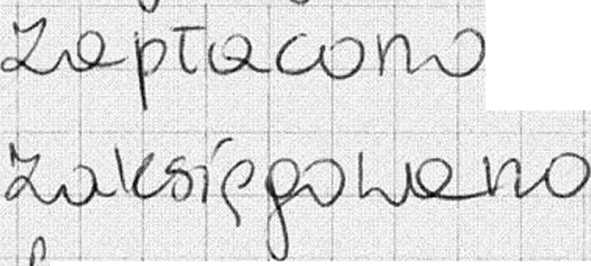 zapłacono
zaksięgowano